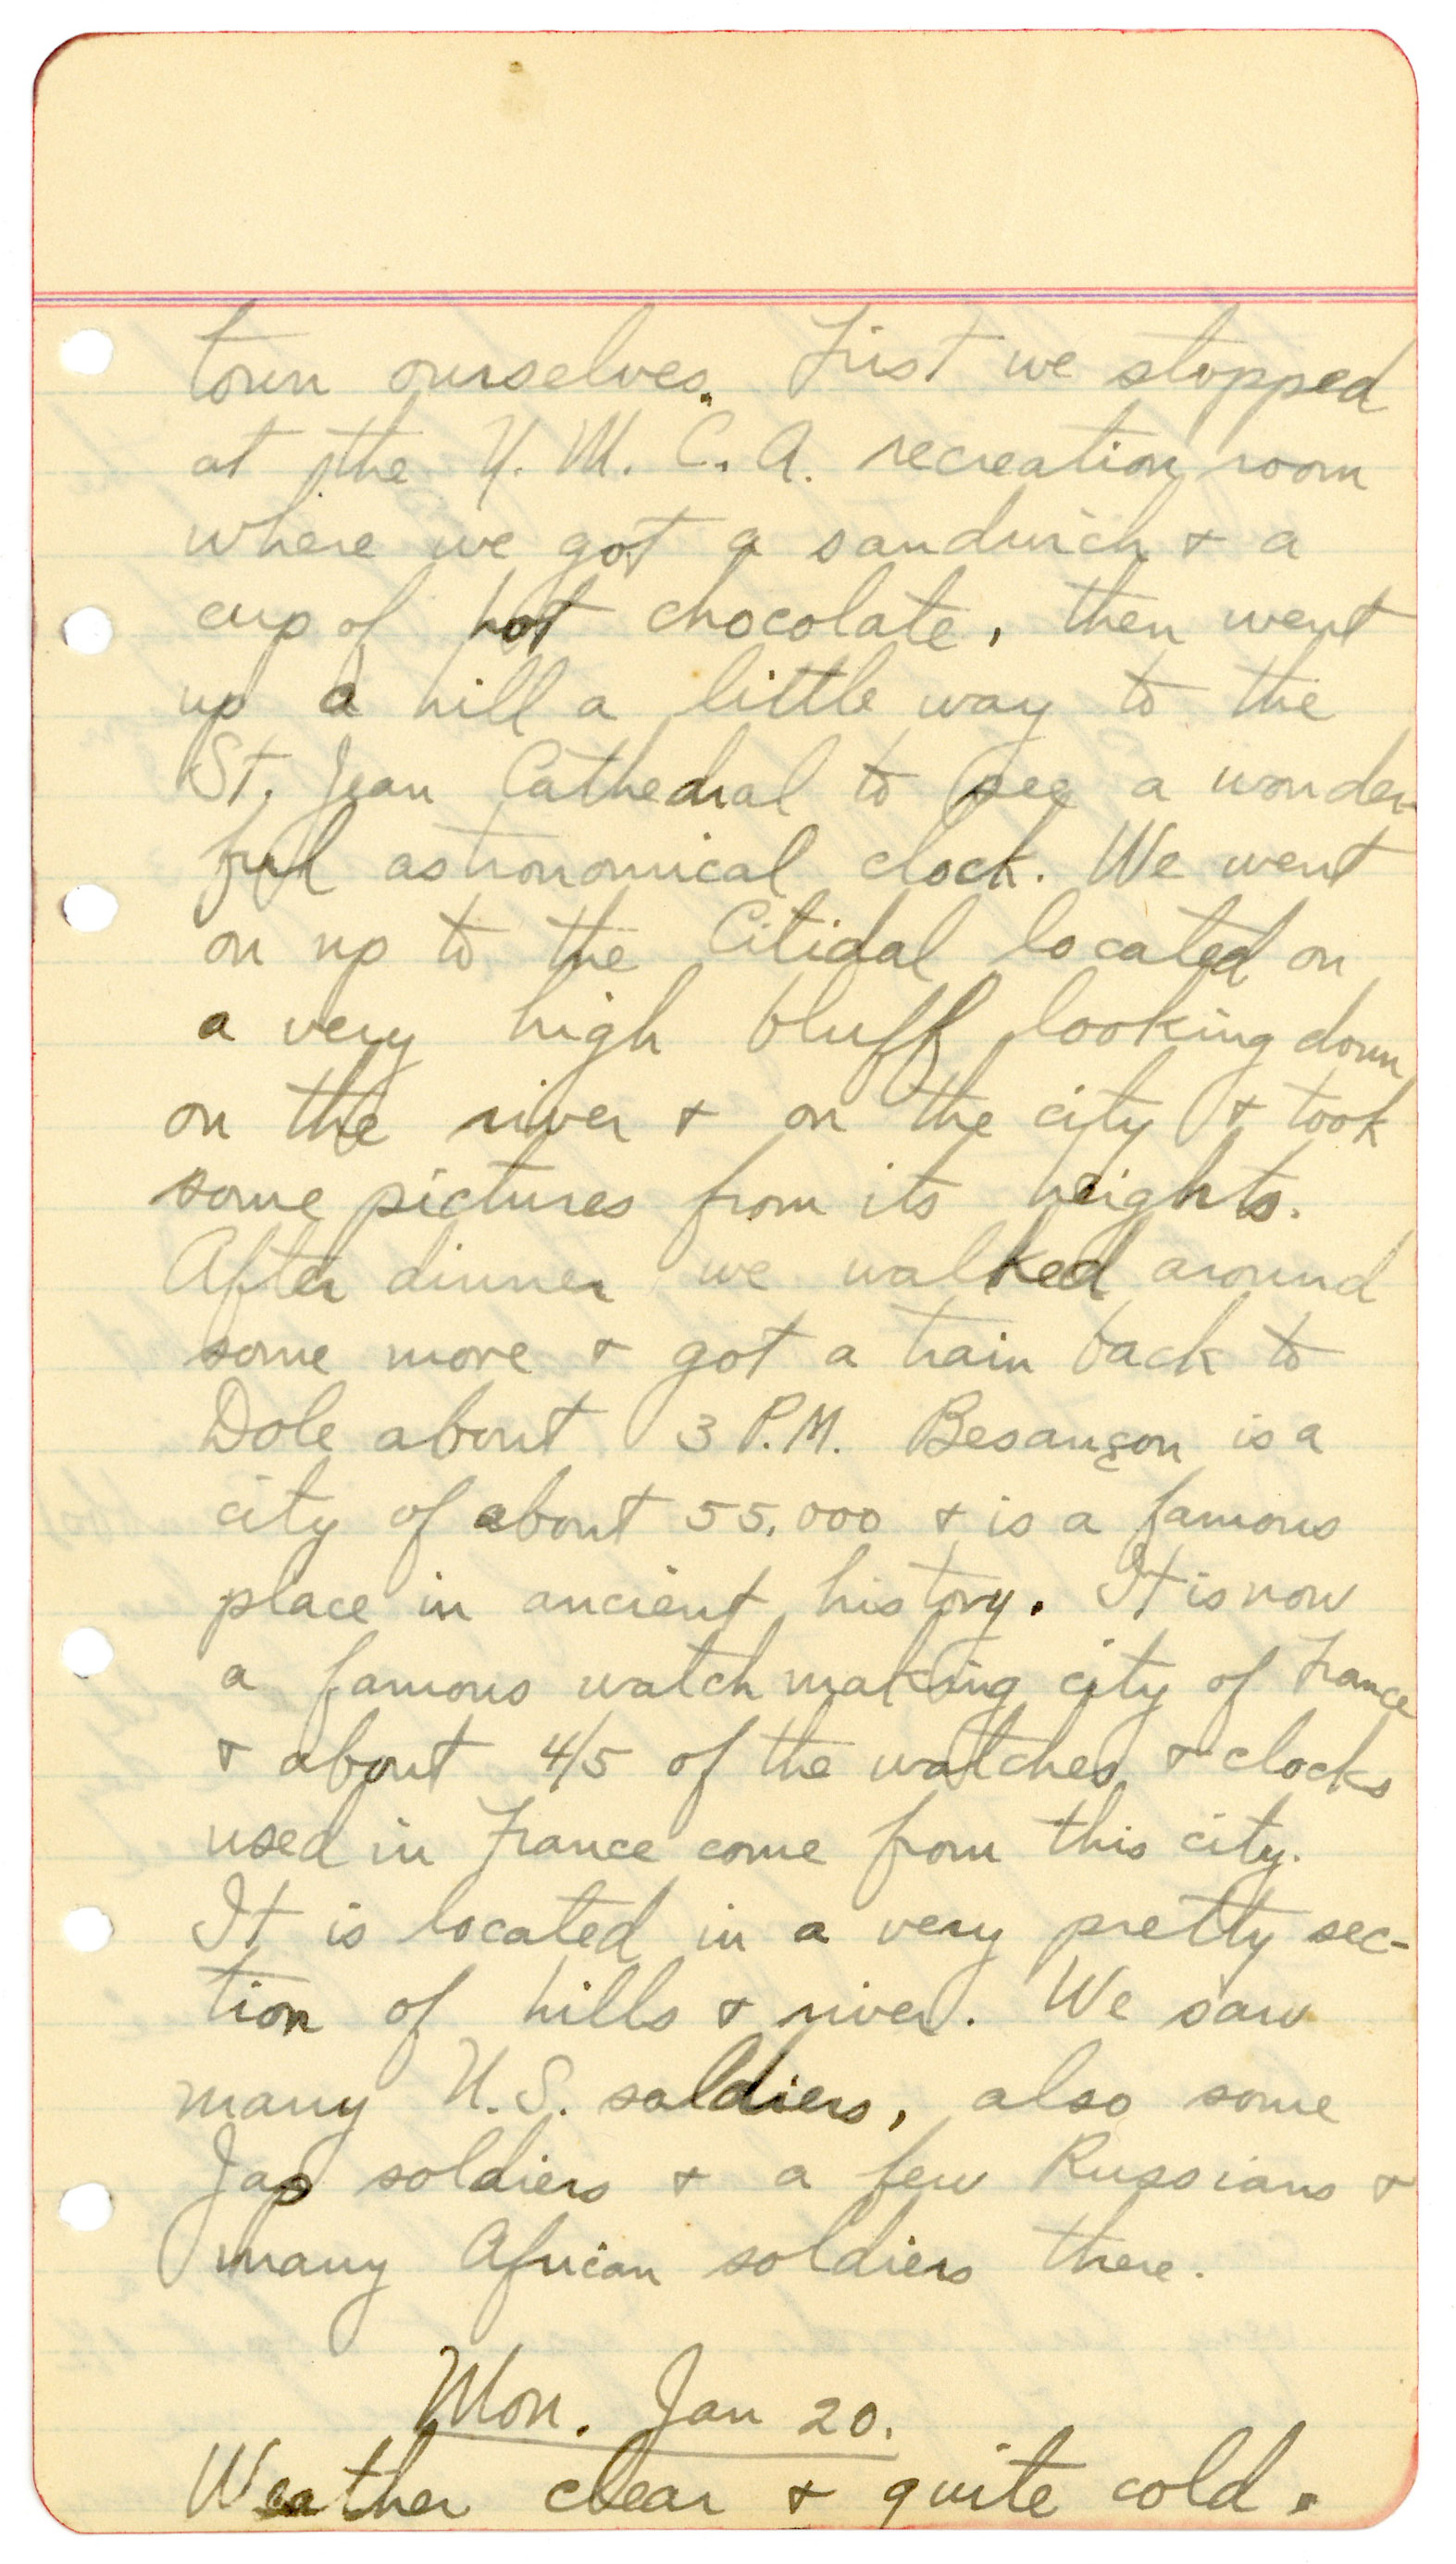 town ourselves. First we stopped
at the Y.M.C.A. recreation room
where we got a sandwich + a
cup of hot chocolate, then went
up a hill a little way to the
St. Jean Cathedral to see a wonder-
ful astronomical clock. We went
on up to the Citidal located on
a very high bluff looking down
on the river + on the city + took
some pictures from its heights.
After dinner we walked around
some more + got a train back to
Dole about 3 P.M. Besançon is a
city of about 55,000 + is a famous
place in ancient history. It is now
a famous watch making city of France
+ about 4/5 of the watches + clocks
used in France come from this city.
It is located in a very pretty sec-
tion of hills + river. We saw
many U.S. soldiers, also some
Jap soldiers + a few Russians +
many African soldiers there.
Mon. Jan 20.
Weather clear + quite cold.